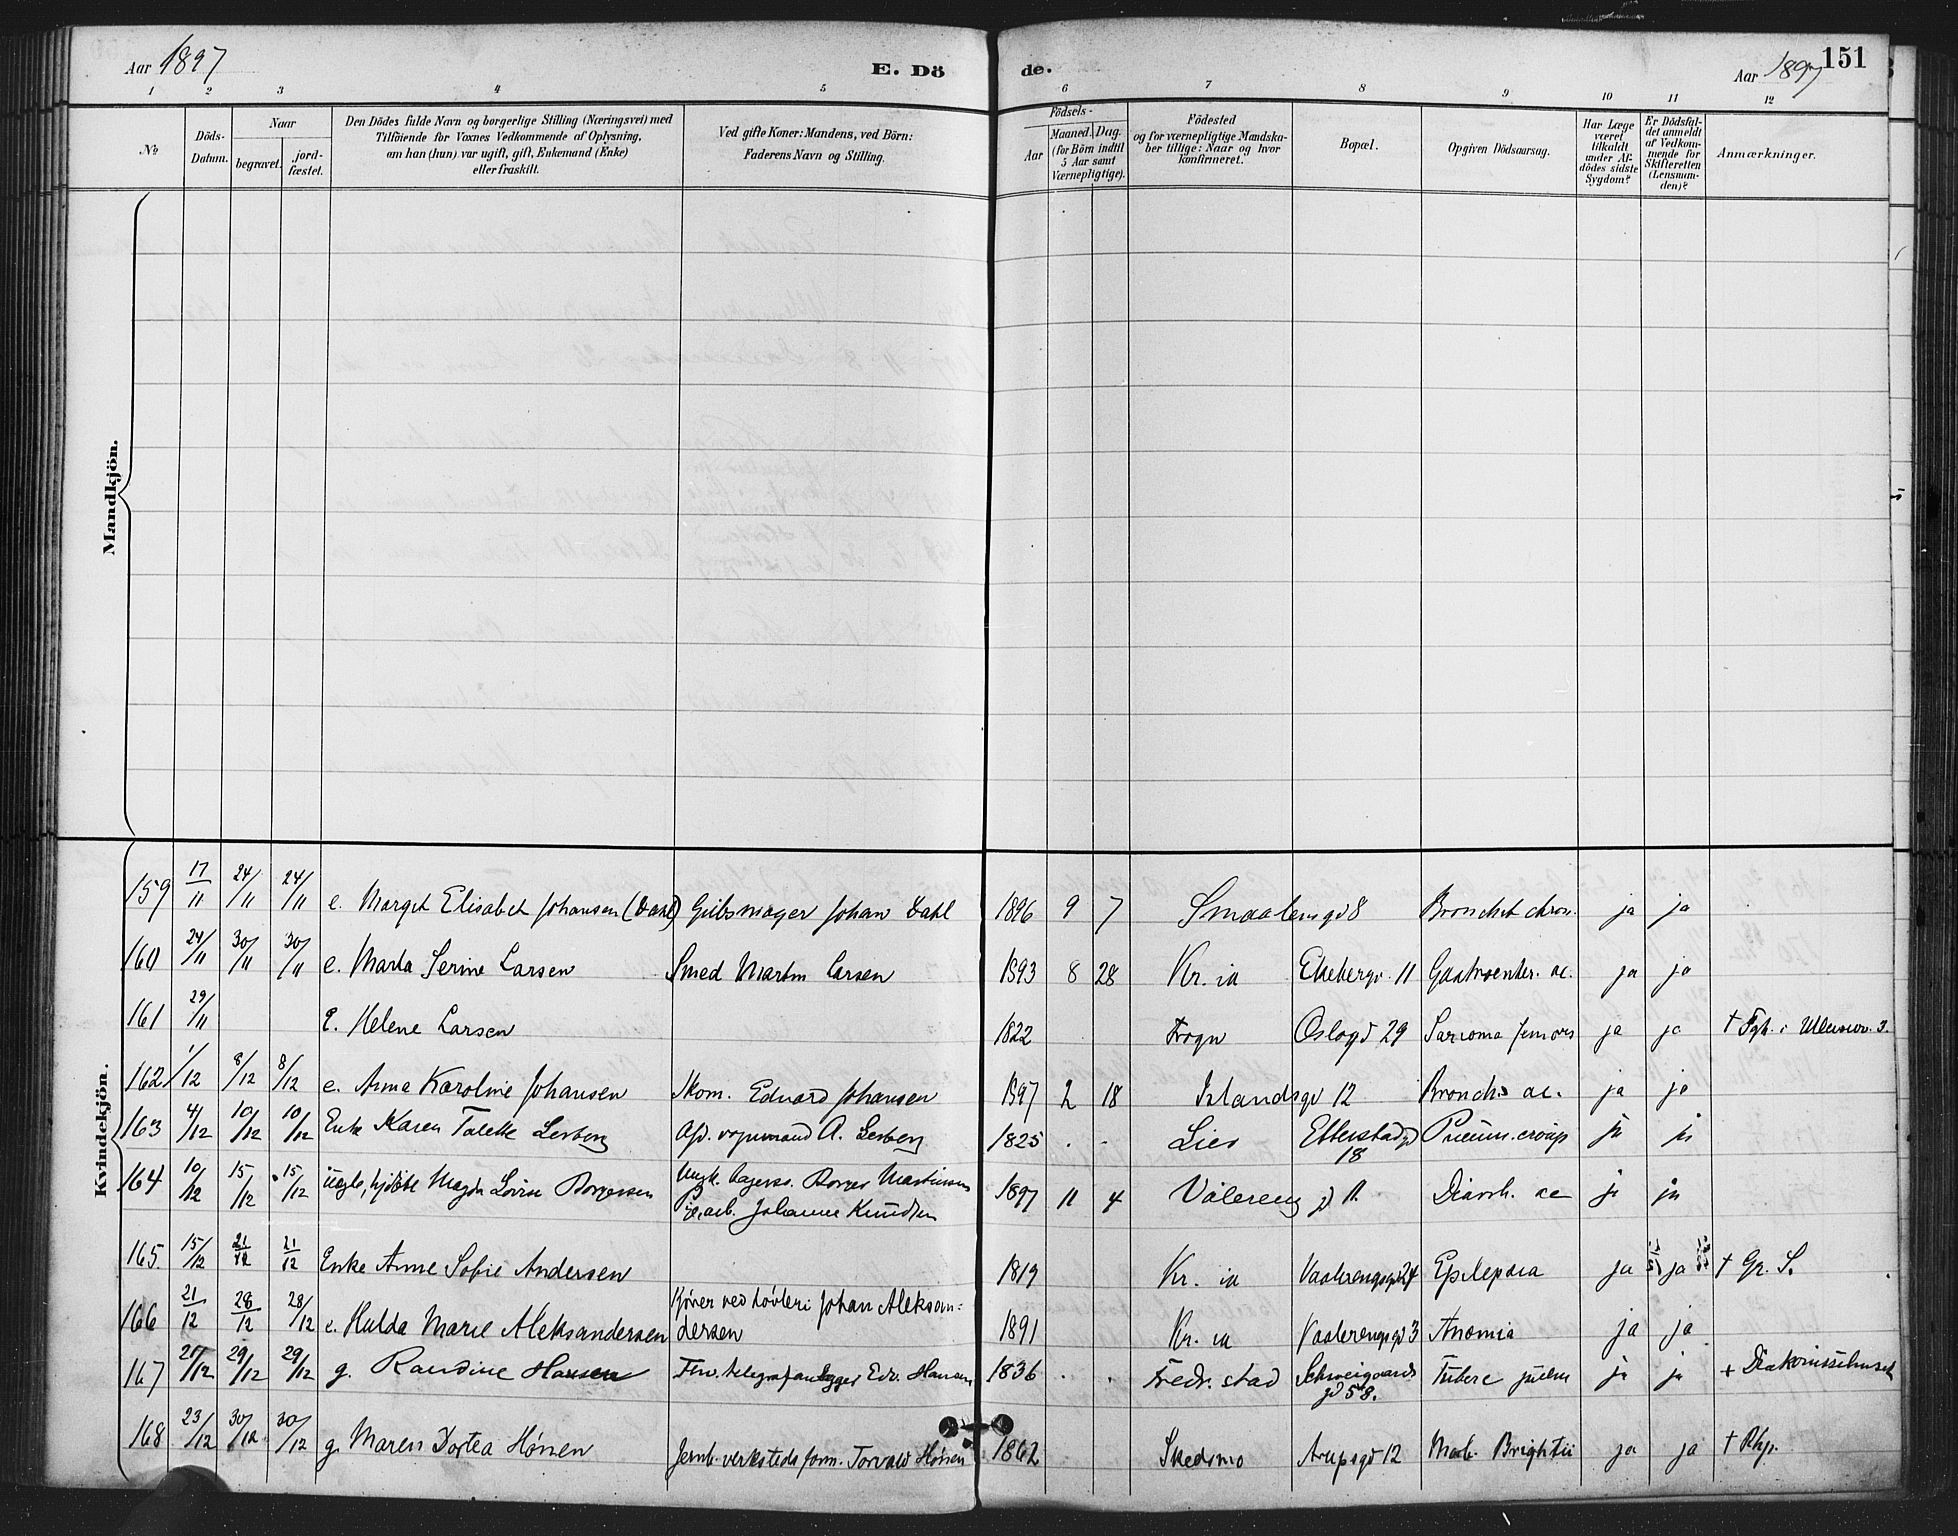 Aar 1897
E. Dö
de.
Aar 1897
151
1 2 3 4 5 6 7 8 9 10 11 12
No
Döds-
Datum.
Naar
begravet.
jord-
fæstet.
Den Dödes fulde Navn og borgerlige Stilling (Næringsvei) med
Tilföiende for Voxnes Vedkommende af Oplysning,
om han (hun) var ugift, gift, Enkemand (Enke)
eller fraskilt.
Ved gifte Koner: Mandens, ved Börn:
Faderens Navn og Stilling.
Födsels-
Aar
Maaned. Dag.
(for Börn indtil
5 Aar samt
Værnepligtige).
Födested
og for værnepligtige Mandska-
ber tillige: Naar og hvor
konfirmeret.
Bopæl.
Opgiven Dödsaarsag.
Har Læge
været
tilkaldt
under Af-
dödes sidste
Sygdom?
Er Dödsfal-
det anmeldt
af Vedkom-
mende for
Skifteretten
(Lensman-
den)?
Anmærkninger.
Mandkjön.
Kvindekjön.
159 17/11 24/11 24/11 e. Margit Elisabet Johansen (Dahl) Gibsmager Johan Dahl 1896 9 7 Smaalensgd 8 Bronchit chron. ja ja
160 24/11 30/11 30/11 e. Marta Serine Larsen Smed Martin Larsen 1893 8 28 Kr. ia Ekebergv. 11 Gastroenter. ac. ja ja
161 29/11 E. Helene Larsen 1822 Frogn Oslogd 29 Sarcoma femoris ja ja † Sgh. i Ullensv. 3.
162 1/12 8/12 8/12 e. Anna Karoline Johansen Skom. Edvard Johansen 1897 2 18 Islandsgd 12 Bronch. ac. ja ja
163 4/12 10/12 10/12 Enke Karen Talette Lesberg Afd. vognmand A. Lesberg 1825 . . Lier Etterstadgd
18 Pneum. croup ja ja
164 10/12 15/12 15/12 uægte, hjdöbt Magda Lovise Borgersen Borger Martinsen
arb. Johanne Knudsen 1897 11 4 Vålereng gd Diarrh. ac ja ja
165. 15/12 21/12 21/12 Enke Anne Sofie Andersen 1819 Kr. ia Vaalerengsgd 24 Epilepsia ja ja † Gr. S.
166 21/12 28/12 28/12 e. Hulda Marie Aleksandersen Kjörer ved høvleri Johan Aleksan=
dersen 1891 Kr. ia Vaalerengsgd 3 Anæmia ja ja
167 21/12 29/12 29/12 g. Randine Hansen Fhv. telegrafanlægger Edv. Hansen 1836 . . Fredr. stad Schweigaards
gd 58. Tuberc pulm ja ja † Diakonissehuset
168 23/12 30/12 30/12 g. Maren Dortea Hønen Jernb. verksteds form. Torvald Hønen 1862 Skedsmo Arupsgd 12 Morb. Brightii ja ja † Rhp.